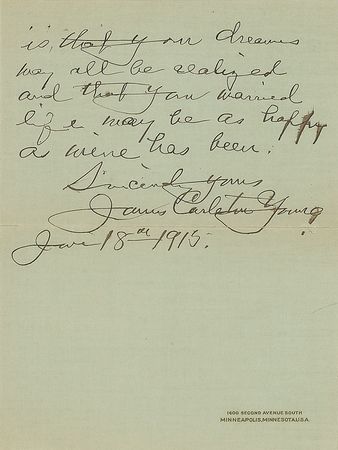 is, that your dreams
may all be realized
and that your married
life may be as happy
as mine has been.
Sincerely yours
James Carleton Young
18th 1915.
1600 SECOND AVENUE SOUTH
MINNEAPOLIS, MINNESOTA, U.S.A.